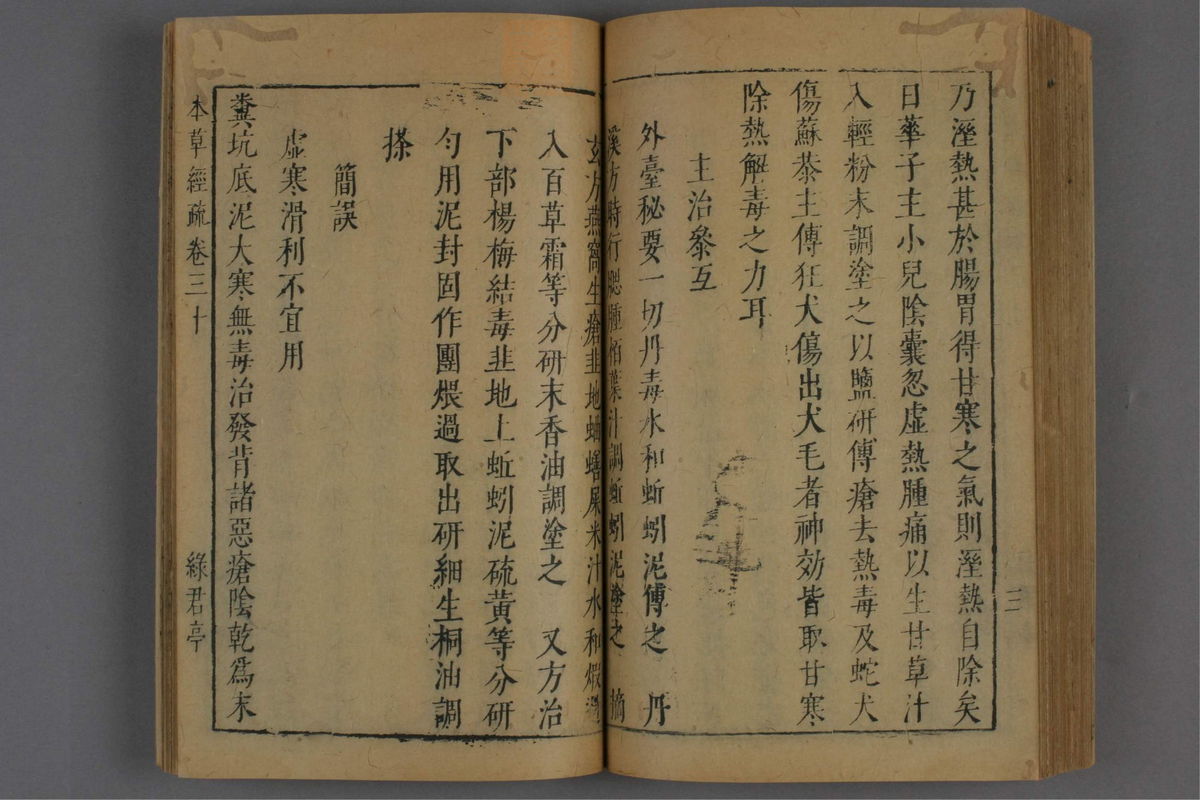 乃溼熱甚於腸胃得甘寒之氣則溼熱自除矣
日華子主小兒陰囊忽虛熱腫痛以生甘草汁
入輕粉末調塗之以鹽研傅瘡去熱毒及蛇犬
傷蘇恭主傅狂犬傷出犬毛者神効皆取甘寒
除熱解毒之力耳
主治叅互
外臺秘要一切丹毒水和蚯蚓泥傅之 丹
溪方時行腮腫柏葉汁調蚯蚓泥塗之 摘
玄方燕窩生瘡韭地蛐蟮屎米汁水和煆過
入百草霜等分研末香油調塗之 又方治
下部楊梅結毒韭地上蚯蚓泥硫黃等分研
勻用泥封固作團煨過取出研細生桐油調
搽
簡誤
虛寒滑利不宜用
糞坑底泥大寒無毒治發背諸惡瘡陰乾爲末
本草經疏卷三十
綠君亭
三